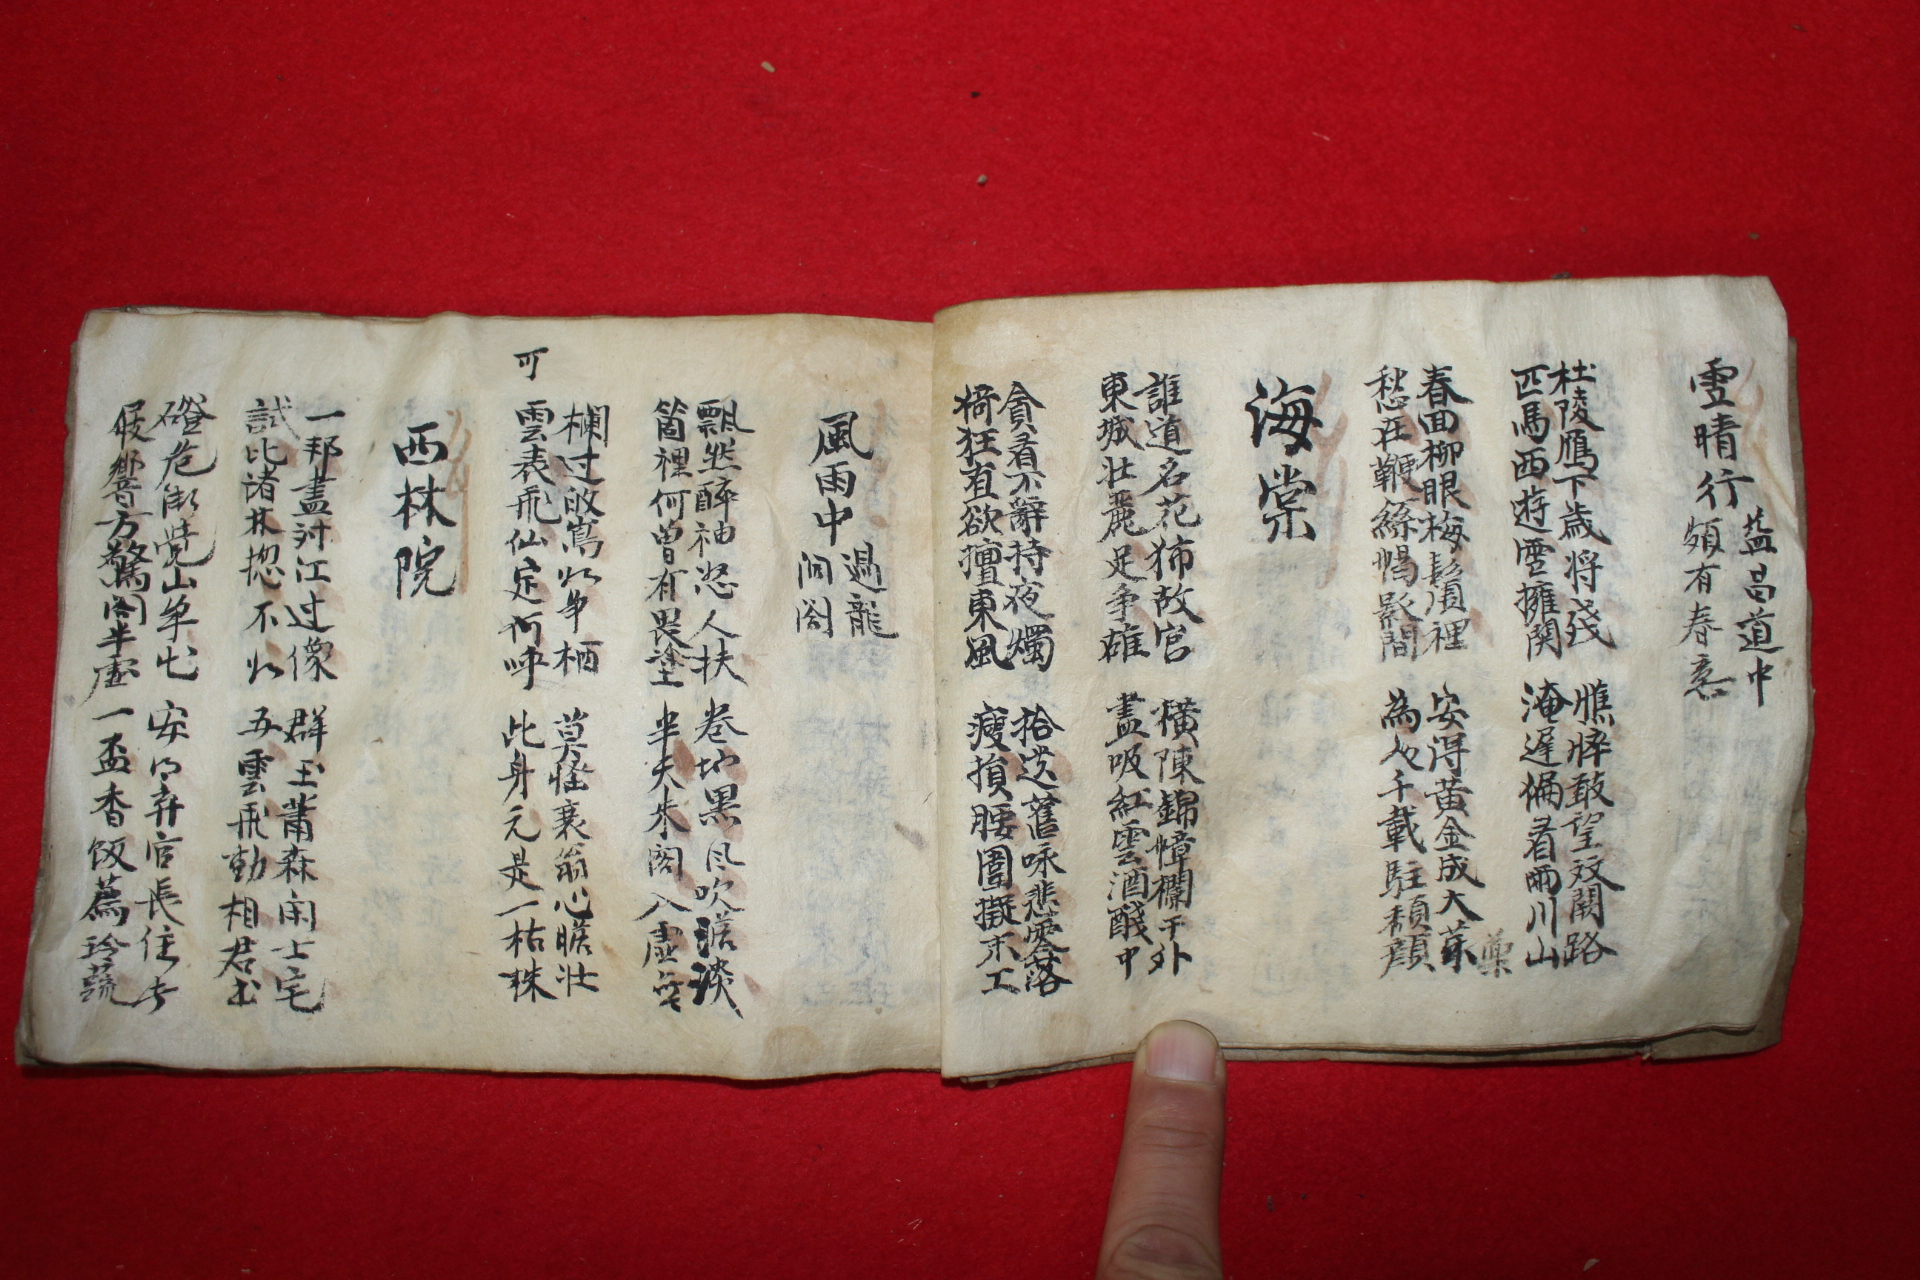 雪晴行
益昌道中
頗有春意
杜陵鴈下歲将殘
匹馬西遊雪擁関
憔悴敢望双闕路
淹遲徧看兩川山
春回柳眼梅鬚裡
愁在鞭絲㡌影間
安得黃金成大薬
為人千載駐頽顔
海棠
誰道名花㹃故宮
東城壯麗足爭雄
橫陳錦幛欄干外
盡吸紅雲酒醆中
貪看不辭持夜燭
猗狂有欲擅東風
拾遺舊咏悲零落
瘦損腰圍擬未工
風雨中
過龍
洞閣
飄然醉袖怒人扶
箇裡何曾有畏塗
卷地黑風吹澹淡
半天朱閣入虛無
欄过
栖
雲表飛仙定何呼
可
莫怪衰翁心膽壯
此身元是一枯株
西林院
一邦盡對江过像
試比諸林揔不
群玉蕭森開士宅
五雲飛動相君書
磴危
屐響方驚閣半虛
安得弃官長住
一盃香飯薦珍蔬